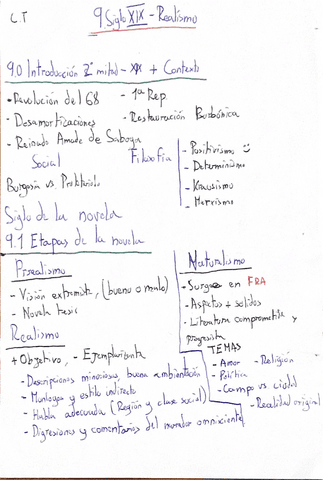 C.T
9. Siglo XIX - Realismo
9.0 Introducción 2ª mitad - XIX + Contexto
- Revolución del 68
- 1ª Rep.
- Desamortizaciones
- Restauración Borbónica
- Reinado Amadeo de Saboya
Social
Burguesía vs. Proletariado
Filosofía
- Positivismo
- Determinismo
- Krausismo
- Marxismo
Siglo de la novela
9.1 Etapas de la novela
Prrealismo
- Visión extremista, (bueno o malo)
- Novela tesis
Realismo
+ Objetivo, - Ejemplarizante
- Descripciones minuciosas, buena ambientación
- Monólogos y estilo indirecto
- Habla adecuada (Región y clase social)
- Digresiones y comentarios del narrador omnisciente
Naturalismo
- Surge en FRA
- Aspectos + sólidos
- Literatura comprometida y
progresista
TEMAS
- Amor
- Religión
- Política
- Campo vs ciudad
- Realidad original